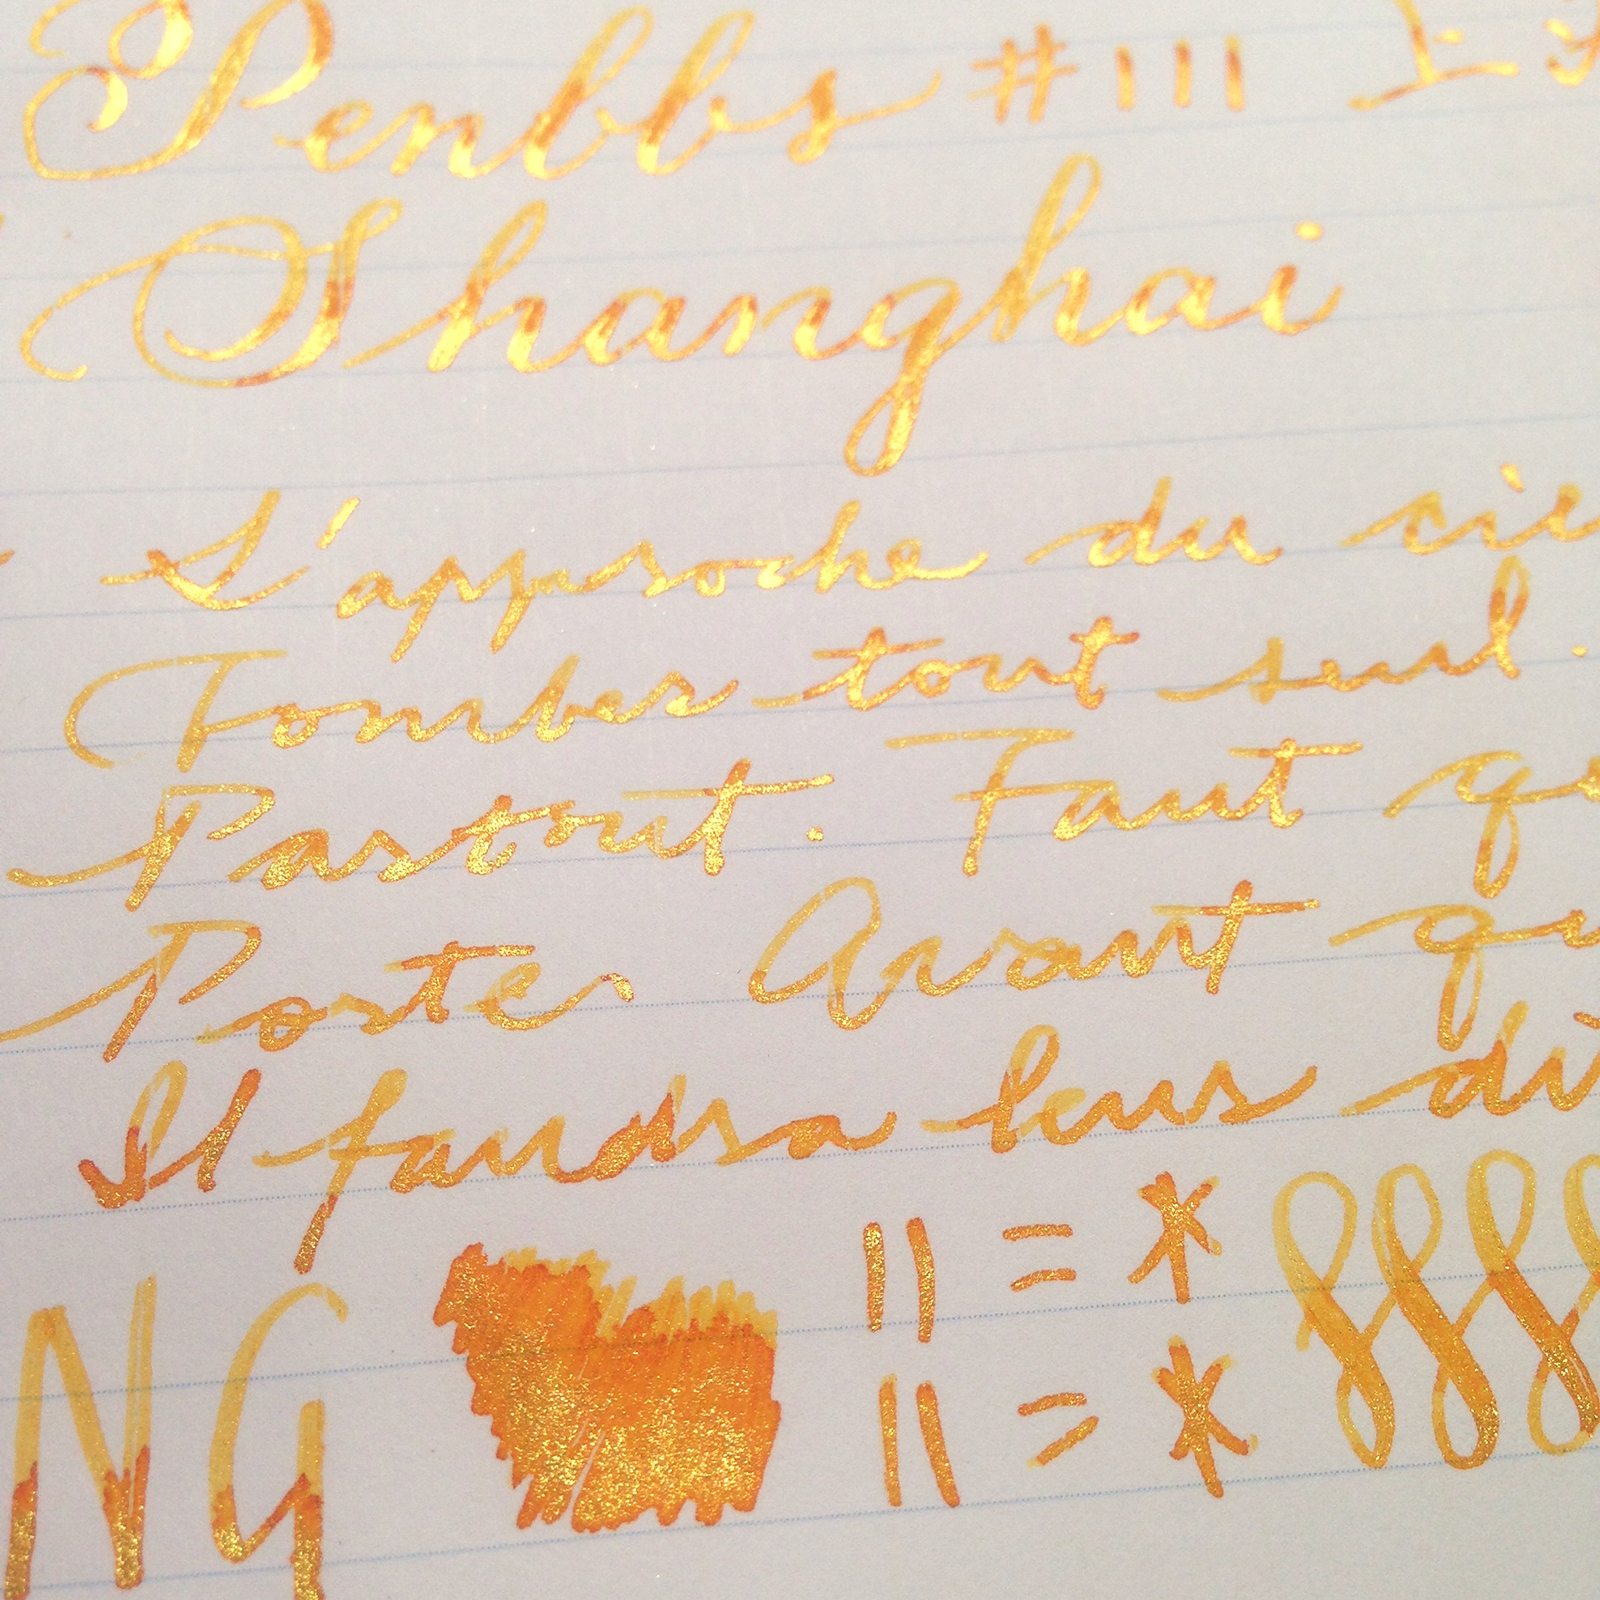 Penbbs #111 上
Shanghai
L'approche du cie
Tomber tout seul.
Partout. Faut qu
Porte, Avant qu
Il faudra leur di
NG || = *
|| = *